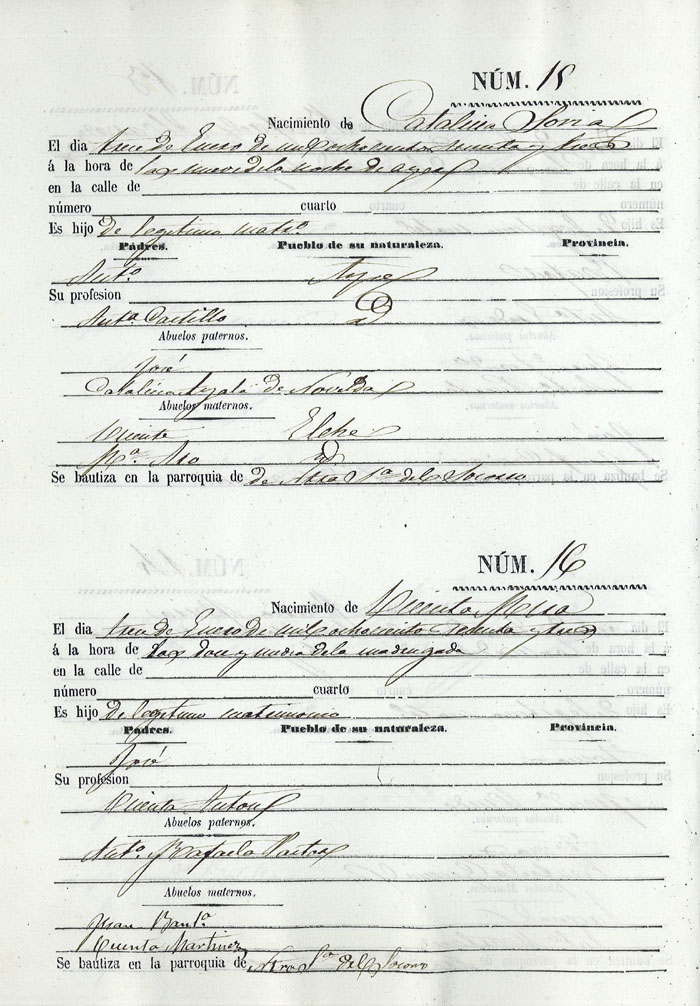 NÚM. 15
Nacimiento de Catalina Soria
El dia trece de Enero de mil ochocientos setenta y tres
á la hora de las nueve de la noche de ayer
en la calle de
número cuarto
Es hijo de legitimo matrº
Padres. Pueblo de su naturaleza. Provincia.
Antº Aspe
Su profesion
Antª Castillo id
Abuelos paternos.
José
Catalina Ayala de Novelda
Abuelos maternos.
Vicente Elche
Mª id
Se bautiza en la parroquia de de Ntra Sª del Socorro
NÚM. 16
Nacimiento de Vicenta Mira
El dia trece de Enero de mil ochociento setenta y tres
á la hora de las doce y media de la madrugada
en la calle de
número cuarto
Es hijo de legitimo matrimonio
Padres. Pueblo de su naturaleza. Provincia.
José
Su profesion
Vicenta Anton
Abuelos paternos.
Antº y Rafaela Pastor
Abuelos maternos.
Juan Bautª
Vicenta Martinez
Se bautiza en la parroquia de Ntra Sª del Socorro